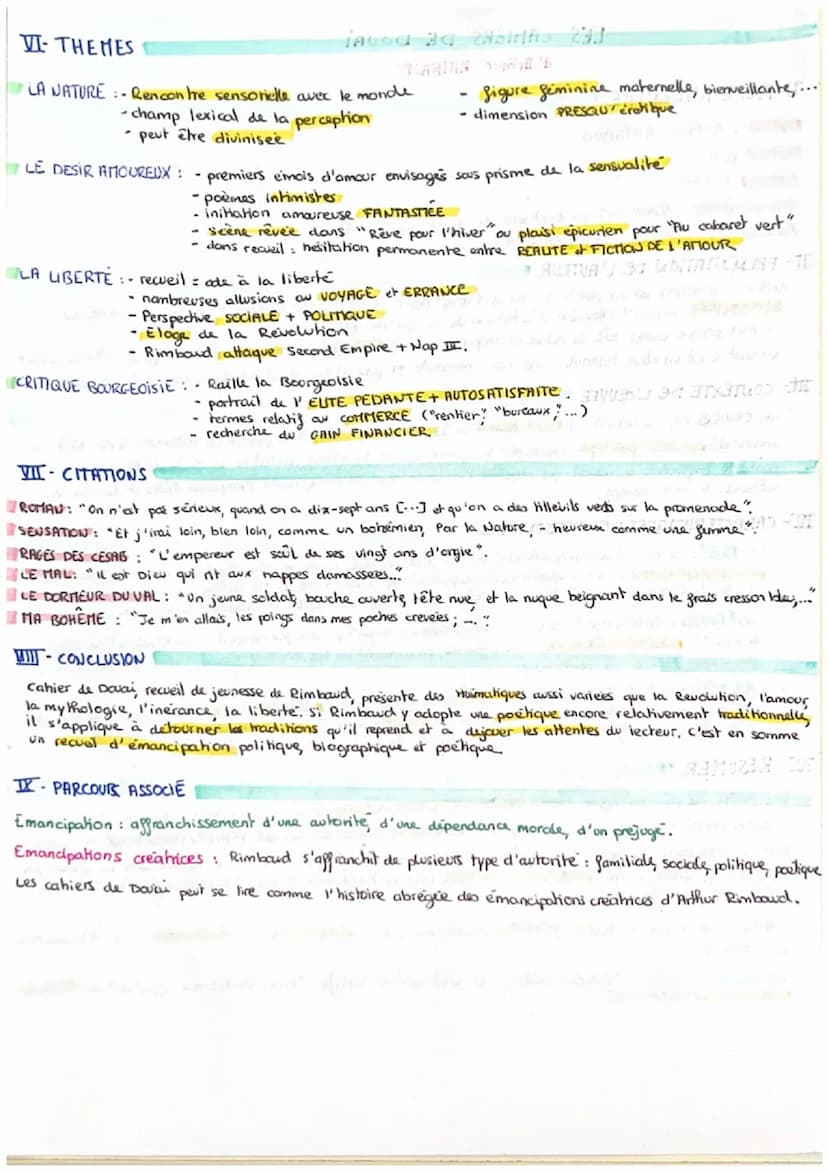 VI- THEMES
LA NATURE : - Rencontre sensorielle avec le monde
- champ lexical de la perception
- peut être divinisée
- figure féminine maternelle, bienveillante,...
- dimension PRESQU'érotique
LE DESIR AMOUREUX : - premiers émois d'amour envisagés sous prisme de la sensualité
- poèmes intimistes
- initiation amoureuse FANTASMÉE
- scène rêvée dans "Rêve pour l'hiver" ou plaisi épicurien pour "Au cabaret vert"
- dans recueil : hésitation permanente entre REALITE et FICTION DE L'AMOUR
LA LIBERTÉ : - recueil = ode à la liberté
- nombreuses allusions au VOYAGE et ERRANCE
- Perspective SOCIALE + POLITIQUE
- Éloge de la Révolution
- Rimbaud attaque Second Empire + Nap III.
CRITIQUE BOURGEOISIE : - Raille la Bourgeoisie
- portrait de l'ELITE PEDANTE + AUTOSATISFAITE.
- termes relatif au COMMERCE ("rentier", "bureaux",...)
- recherche du GAIN FINANCIER
VII - CITATIONS
ROMAN : "On n'est pas sérieux, quand on a dix-sept ans [...] et qu'on a des tilleuls verts sur la promenade".
SENSATION : "Et j'irai loin, bien loin, comme un bohémien, Par la Nature, - heureux comme une femme".
RAGES DES CESARS : "L'empereur est soûl de ses vingt ans d'orgie".
LE MAL : "Il est Dieu qui rit aux nappes damassées..."
LE DORMEUR DU VAL : "Un jeune soldat, bouche ouverte, tête nue, et la nuque beignant dans le frais cresson bleu,..."
MA BOHÊME : "Je m'en allais, les poings dans mes poches crevées ; ..."
VIII - CONCLUSION
Cahier de Douai, recueil de jeunesse de Rimbaud, présente des thématiques aussi variées que la Revolution, l'amour,
la mythologie, l'inérance, la liberté. Si Rimbaud y adopte une poétique encore relativement traditionnelle,
il s'applique à détourner les traditions qu'il reprend et à déjouer les attentes du lecteur. C'est en somme
un recueil d'émancipation politique, biographique et poétique
IX - PARCOURS ASSOCIÉ
Emancipation : affranchissement d'une autorité, d'une dépendance morale, d'un préjugé.
Emancipations créatrices : Rimbaud s'affranchit de plusieurs type d'autorité : familiale, sociale, politique, poétique
Les cahiers de Douai peut se lire comme l'histoire abrégée des émancipations créatrices d'Arthur Rimbaud.